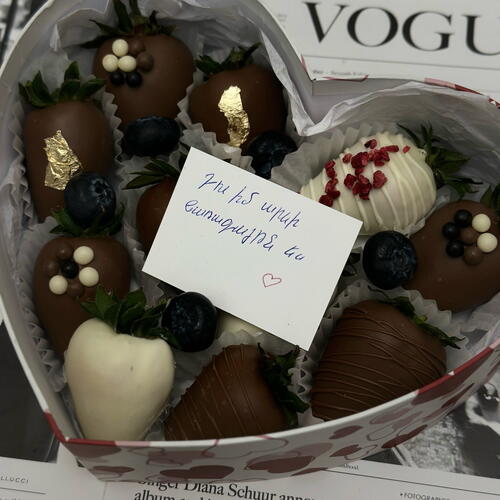 VOGU
Դու իմ արևի
ճառագայթն ես
LLUCCI
Singer Diana Schuur anno
album
+FOTOGRAF